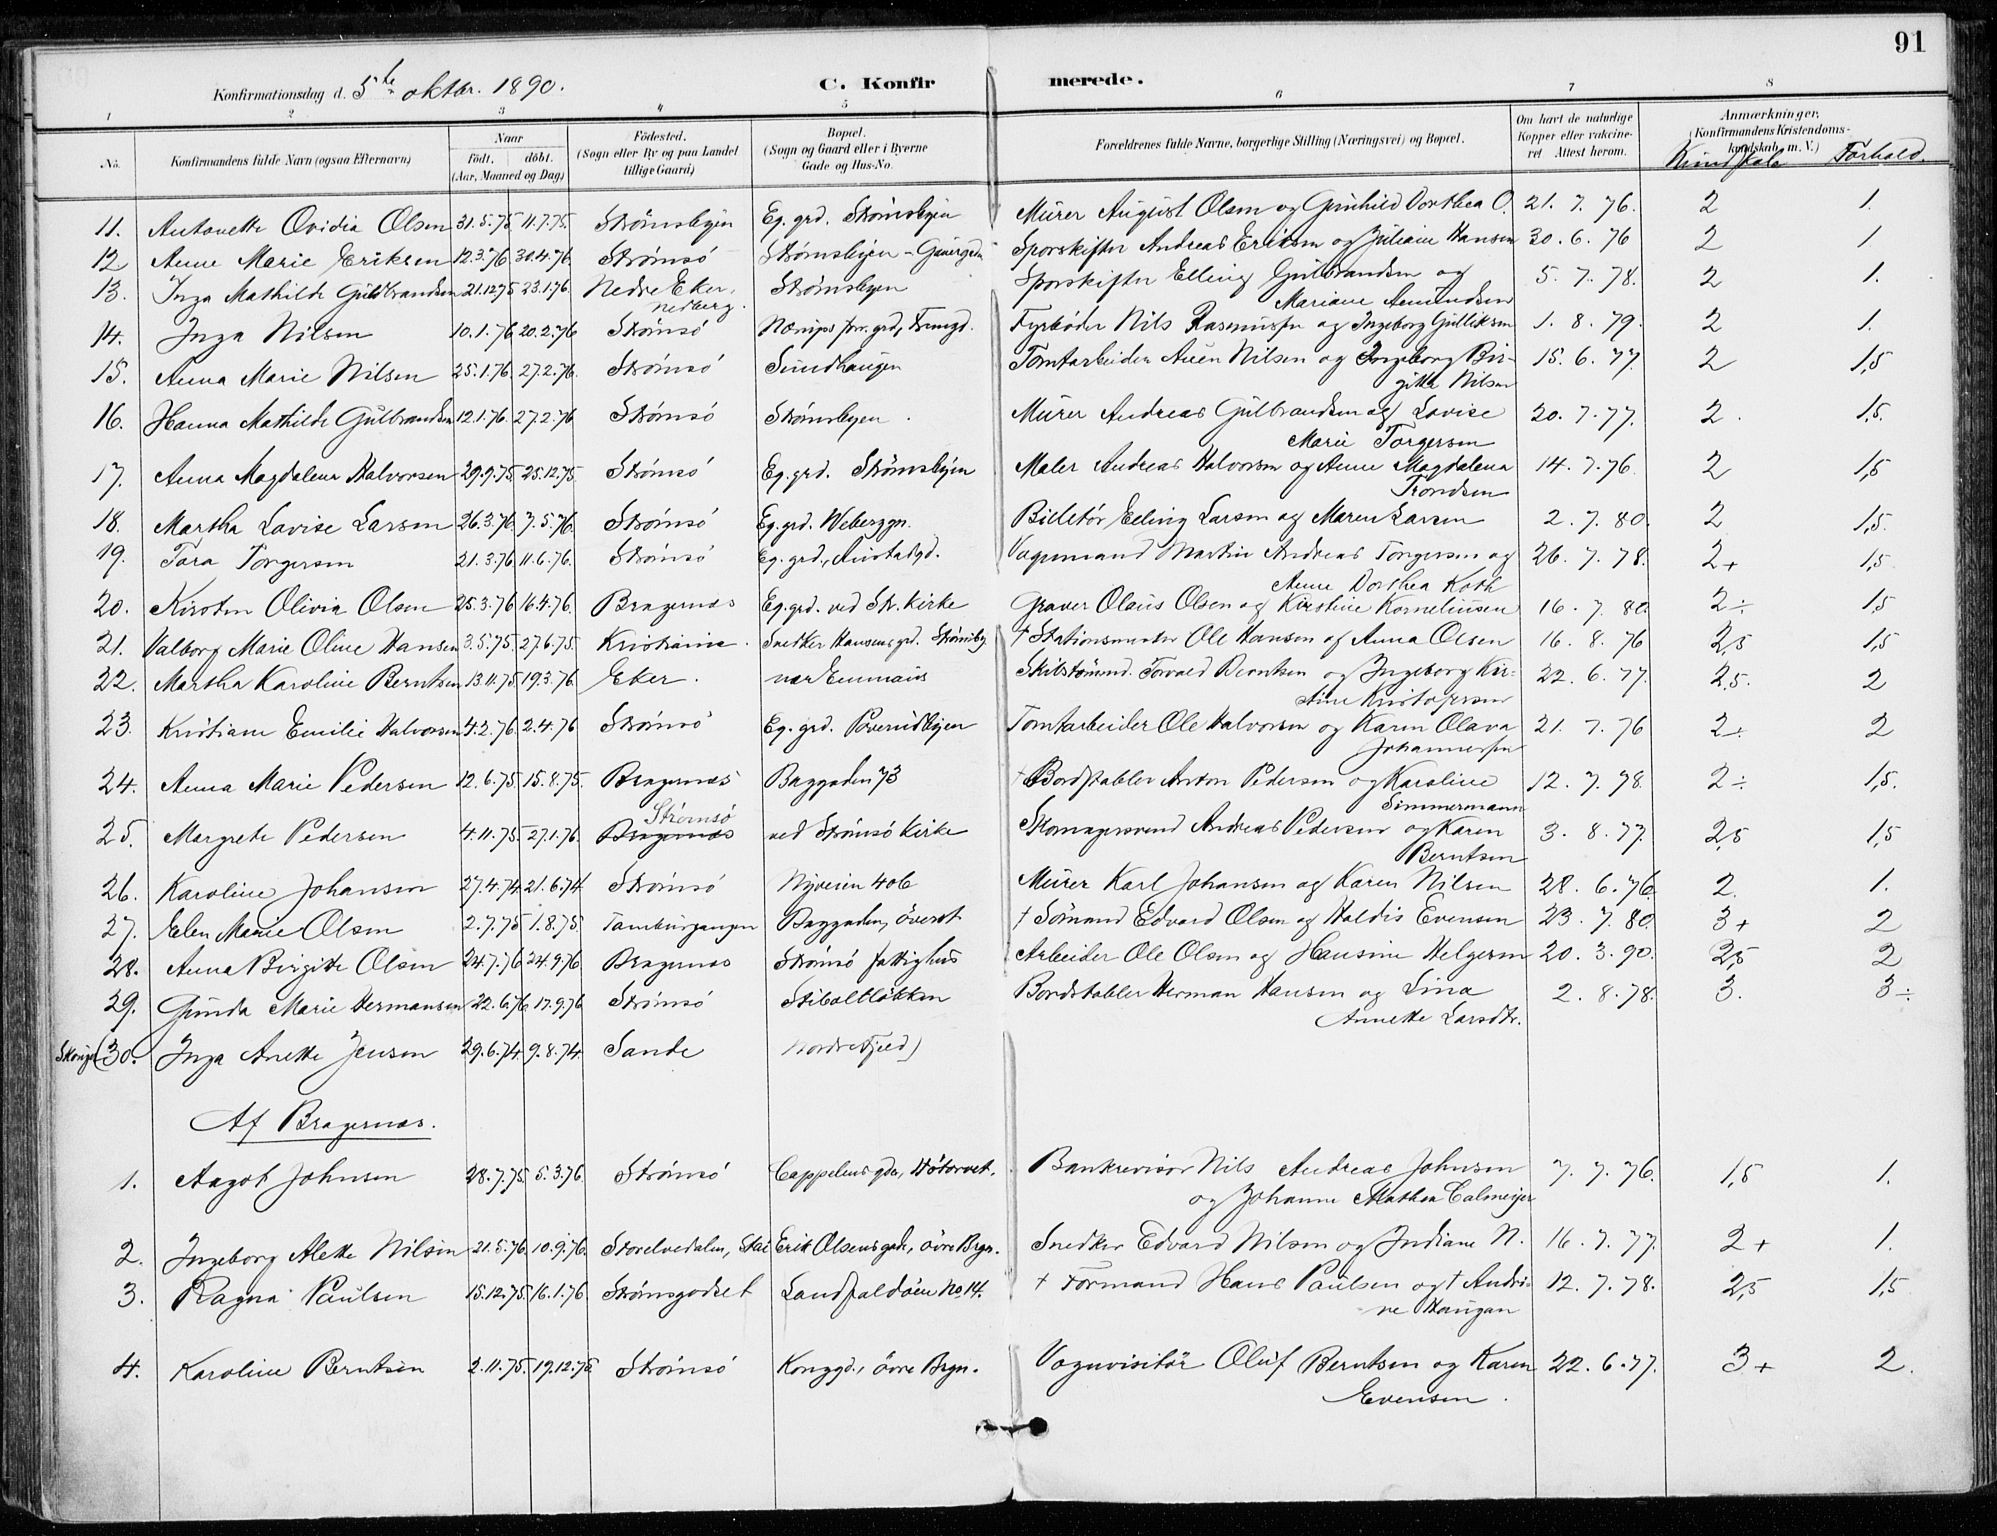 91
Konfirmationsdag d. 5te oktbr. 1890. C. Konfirmerede.
1 2 3 4 5 6 7 8
No. Konfirmandens fulde Navn (ogsaa Efternavn) Naar Født. døbt. (Aar, Maaned og Dag) Fødested. (Sogn eller By og paa Landet tillige Gaard) Bopæl. (Sogn og Gaard eller i Byerne Gade og Hus-No. Forældrenes fulde Navne, borgerlige Stilling (Næringsvei) og Bopæl. Om havt de naturlige Kopper eller vakcineret Attest herom. Anmærkninger, (Konfirmandens Kristendomskundskab m. V.) Kundskab Forhold.
11. Antonette Ovidia Olsen 31.5.75 11.7.75. Strømsbyen Eg. grd. Strømsbyen Murer August Olsen og Gunhild Dorthea O. 21. 7. 76. 2 1.
12 Anne Marie Eriksen 12.3.76 30.4.76. Strømsø Strømsbyen - Sporskifter Andreas Eriksen og Juliane Hansen 30. 6. 76 2 1
13. Inga Mathilde Guldbrandsen 21.12.75 23.1.76. Nedre Eker, Strømsbyen Sporskifter Elling Gulbrandsen og 5. 7. 78. 2 1.
Nedberg. Mariane Amundsen
14. Inga Nilsen 10.1.76 20.2.76 Strømsø Nærups forr. grd, Tømgd. Fyrbøder Nils Rasmussen og Ingeborg Gulliksen 1. 8. 79. 2 1.
15. Anna Marie Nilsen 25.1.76. 27.2.76. Strømsø Sundhaugen Tomtarbeider Auen Nilsen og Ingeborg Bir- 15. 6. 77. 2 1,5
gitte Nilsen
16. Hanna Mathilde Gulbrandsen 12.1.76. 27.2.76 Strømsø Strømsbyen. Murer Andreas Gulbrandsen og Lovise 20. 7. 77. 2. 1,5.
Marie Torgersen
17. Anna Magdalena Halvorsen 29.9.75 25.12.75. Strømsø Eg. grd. Strømsbyen Maler Andreas Halvorsen og Anne Magdalena 14. 7. 76. 2 1,5
Trondsen
18. Martha Lovise Larsen 26.3.76 7.5.76. Strømsø Eg. grd. Weberggn. Billetør Elling Larsen og Maren Larsen 2. 7. 80. 2 1,5.
19. Tora Torgersen 21.3.76 11.6.76. Strømsø Eg. grd., Austadgd. Vognmand Martin Andreas Torgersen og 26. 7. 78. 2+ 1,5.
Anne Dorthea Roth
20. Kirsten Olivia Olsen 25.3.76 16.4.76. Bragernæs Eg. grd. ved Str. kirke Graver Olaus Olsen og Kirstine Korneliusen 16. 7. 80. 2÷ 1,5
21. Valborg Marie Oline Hansen 3.5.75 27.6.75. Kristiania. Snedker Hansens grd. Strømsby. † Stationsmester Ole Hansen og Anna Olsen 16. 8. 76 2,5 1,5
22. Martha Karoline Berntsen 13.11.75 19.3.76. Eker. nær Emmaus Skiltømmd. Torvald Berntsen og Ingeborg Kir- 22. 6. 77. 2,5. 2
stine Kristofersen
23. Kristiane Emilie Halvorsen 4.2.76. 2.4.76 Strømsø Eg. grd. Poverudbyen Tomtarbeider Ole Halvorsen og Karen Olava 21. 7. 76 2÷ 2
Johannessen
24. Anna Marie Pedersen 12.6.75 15.8.75. Bragernæs Baggaden 73 † Bordstabler Anton Pedersen og Karoline 12. 7. 78. 2÷ 1,5.
Simmermann
25. Margrete Pedersen 4.11.75. 27.1.76. Strømsø Bragernæs ved Strømsø kirke Skomagersvend Andreas Pedersen og Karen 3. 8. 77. 2,5 1,5
Berntsen
26. Karoline Johansen 27.4.74. 21.6.74. Strømsø Nyveien 406 Murer Karl Johansen og Karen Nilsen 28. 6. 76. 2. 1.
27. Elen Marie Olsen 2.7.75 1.8.75. Tamburgangen Baggaden, øverst † Sømand Edvard Olsen og Haldis Evensen 23. 7. 80. 3+ 2
28. Anna Birgitte Olsen 24.7.76 24.9.76 Bragernæs Strømsø fattighus Arbeider Ole Olsen og Hansine Helgesen 20. 3. 90. 2,5 2
29. Gunda Marie Hermansen 22.6.76. 17.9.76 Strømsø Stiboltløkken Bordstabler Herman Hansen og Lina 2. 8. 78. 3. 3÷
Annette Larsdtr.
Skoger (30. Inga Anette Jensen 29.6.74. 9.8.74. Sande Nordre Fjeld)
Af Bragernæs.
1. Aagot Johnsen 28.7.75. 5.3.76. Strømsø Cappelens gde, Høtorvet. Bankrevisor Nils Andreas Johnsen 7. 7. 76. 1,5 1.
og Johanne Mathea Calmeyer
2. Ingeborg Alette Nilsen 21.5.76 10.9.76. Storelvedalen, Skie Erik Olsens gade, øvre Brgn. Snedker Edvard Nilsen og Indiane N. 16. 7. 77. 2+ 1.
3. Ragna Paulsen 15.12.75 16.1.76 Strømsgodset Landfaldøen No. 14. † Formand Hans Paulsen og † Andri- 12. 7. 78. 2,5 1,5
ne Haugan
4. Karoline Berntsen 2.11.75. 19.12.75 Strømsø Konggd., øvre Brgn. Vognvisitør Oluf Berntsen og Karen 22. 6. 77. 3+ 2.
Evensen.